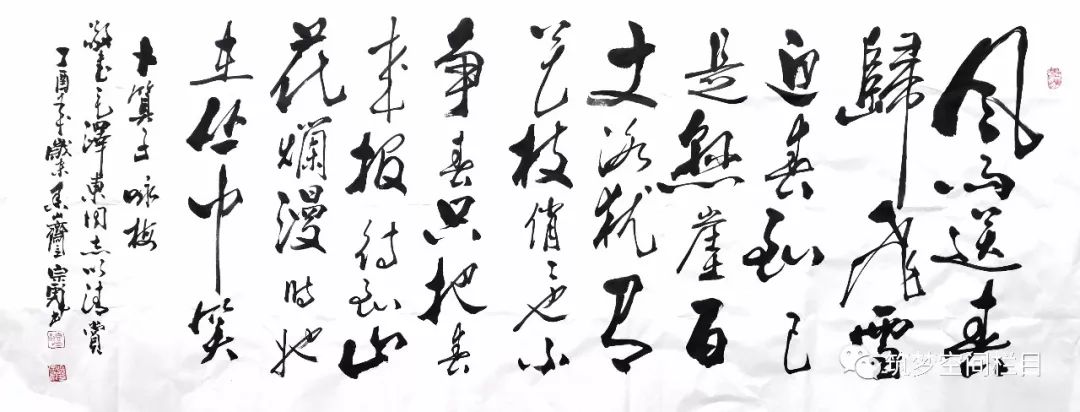 风雨送春
歸飛雪
迎春到已
是懸崖百
丈冰猶有
花枝俏〻也不
争春只把春
来报待到山
花爛漫時她
在丛中笑
卜算子咏梅
毛澤東同志以清賞
丁酉年歲末 齋宗
筑梦空间栏目